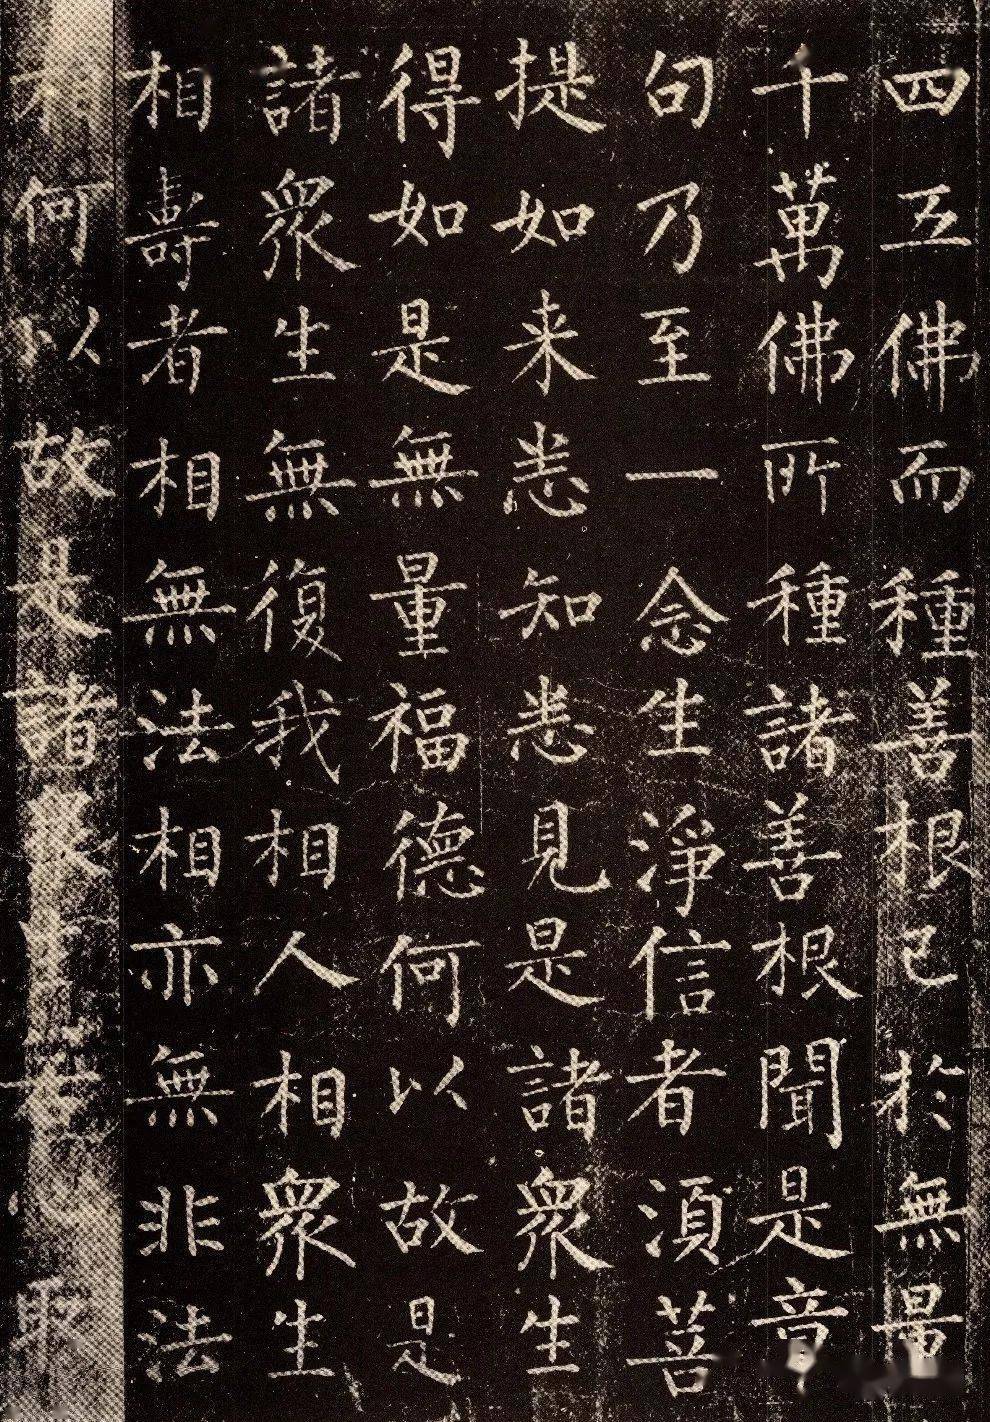 四五佛而種善根已於無量
千萬佛所種諸善根聞是章
句乃至一念生淨信者湏菩
提如来悉知悉見是諸衆生
得如是無量福德何以故是
諸衆生無復我相人相衆生
相壽者相無法相亦無非法
相何以故是諸衆生若心取